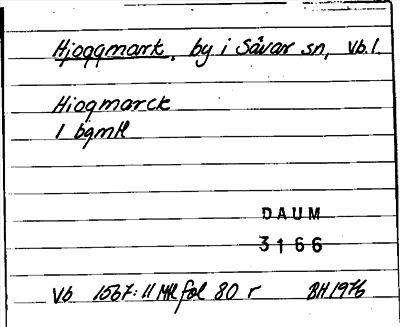 Hjoggmark, by i Sävar sn, Vb.l.
Hiogmarck
1 bgmtl
DAUM
3166
Vb 1567:11 Mtl fol 80 r BH 1976